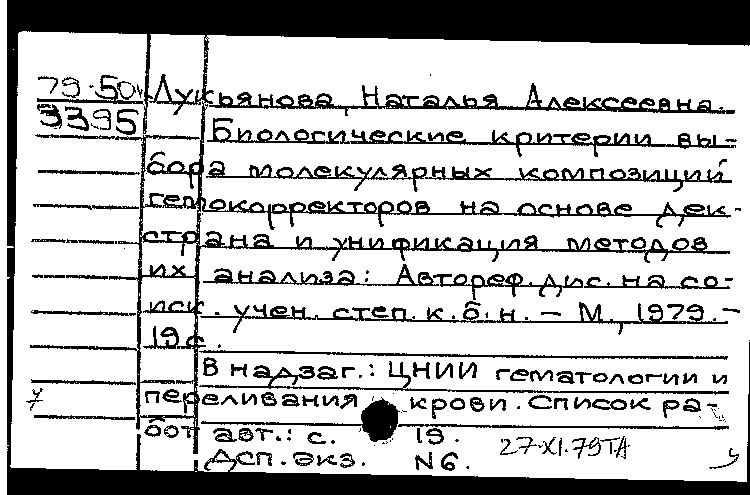 79-504 Лукьянова, Наталья Алексеевна.
3395 Биологические критерии вы-
бора молекулярных композиций
гемокорректоров на основе дек-
страна и унификация методов
их анализа: Автореф. дис. на со-
иск. учен. степ. к.б.н. – М., 1979. –
19 с.
В надзаг.: ЦНИИ гематологии и
переливания крови. Список ра-
бот авт.: с. 19.
Дсп. экз. N6. 27.XI.79